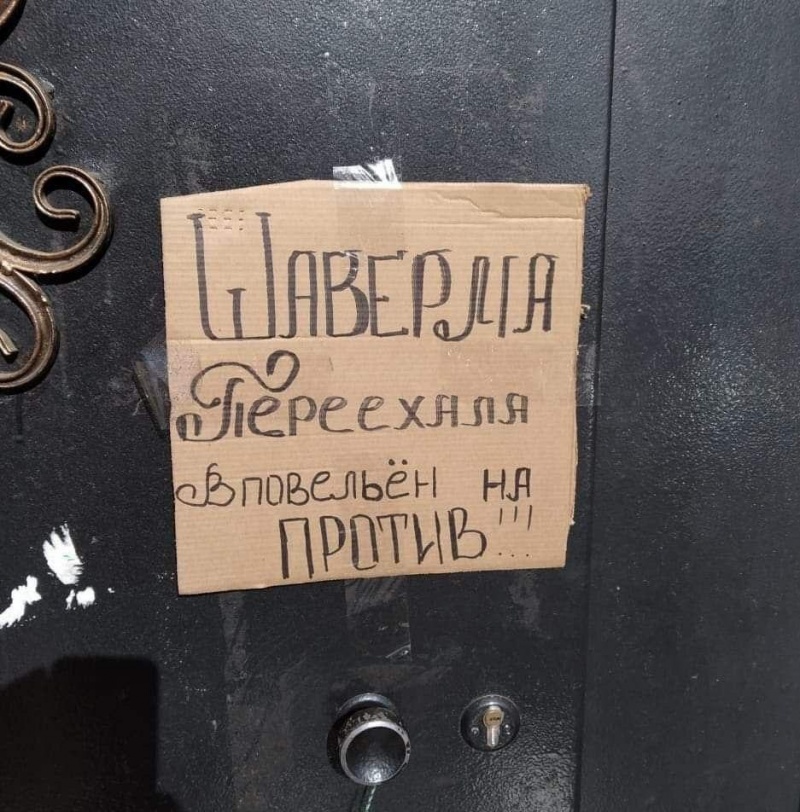 ШАВЕРМА
Переехала
Вповельён на
ПРОТИВ!!!